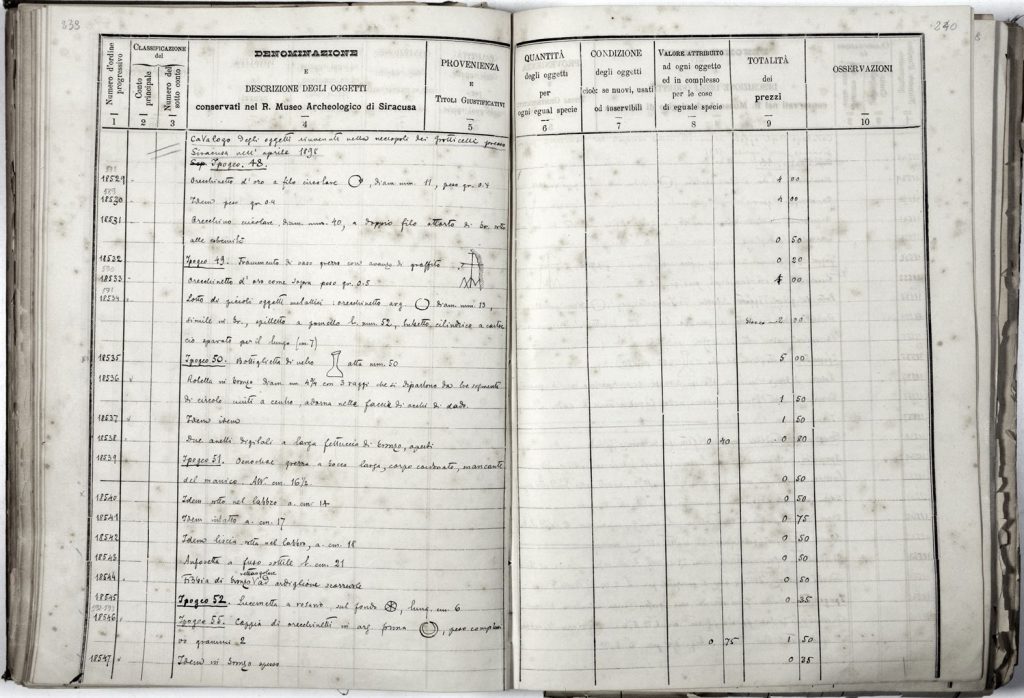 239
240
Numero d'ordine progressivo
CLASSIFICAZIONE
del
Conto principale
Numero del sotto conto
DENOMINAZIONE
E
DESCRIZIONE DEGLI OGGETTI
conservati nel R. Museo Archeologico di Siracusa
PROVENIENZA
E
TITOLI GIUSTIFICATIVI
QUANTITÀ
degli oggetti
per
ogni egual specie
CONDIZIONE
degli oggetti
cioè: se nuovi, usati
od inservibili
VALORE ATTRIBUITO
ad ogni oggetto
ed in complesso
per le cose
di eguale specie
TOTALITÀ
dei
prezzi
OSSERVAZIONI
1 2 3 4 5 6 7 8 9 10
Catalogo degli oggetti rinvenuti nella necropoli dei Grotticelli presso
Siracusa nell' aprile 1896
Ipogeo. 48.
18529 Orecchinetto d'oro a filo circolare, diam. mm. 11, peso gr. 0.4 4 00
18530 Idem peso gr. 0.4 4 00
18531 Orecchino circolare, diam. mm. 40, a doppio filo di br.
alle estremità 0 50
18532 Ipogeo 49. Frammento di vaso grezzo con avanzo di graffito 0 20
18533 Orecchinetto d'oro come sopra peso gr. 0.5 4 00
18534 Lotto di piccoli oggetti metallici: orecchinetto arg. diam. mm. 13,
simile di br., spilletto a pomello l. mm. 52, bubetto, cilindrico a cartoc
cio aperto per il lungo (m. 7) 2 00
18535 Ipogeo 50. Bottiglietta di vetro alta mm. 50 5 00
18536 Rotella in bronzo diam. con 3 raggi che si dipartono da tre segmenti
di circolo uniti a centro, adorna nelle faccie di occhi di dado. 1 50
18537 Idem idem 1 50
18538 Due anelli digitali a larga fettuccia di bronzo, aperti 0 40 0 80
18539 Ipogeo 51. Oenochoe grezza a bocca larga, corpo cordonato, mancante
del manico. Alt. cm. 16½ 0 50
18540 Idem rotto nel labbro a. cm. 14 0 50
18541 Idem intatto a. cm. 17 0 75
18542 Idem liscia rotta nel labbro, a. cm. 18 0 50
18543 Anforetta a fuso sottile l. cm. 21 0 50
18544 Fibbia di bronzo rettangolare ad ardiglione scorrevole 0 50
18545 Ipogeo 52. Lucernetta a rosario, sul fondo, lung. cm 6 0 35
18546 Ipogeo 55. Coppia di orecchinetti in arg. forma, peso comples
vo grammi 2 0 75 1 50
18547 Idem in bronzo 0 25